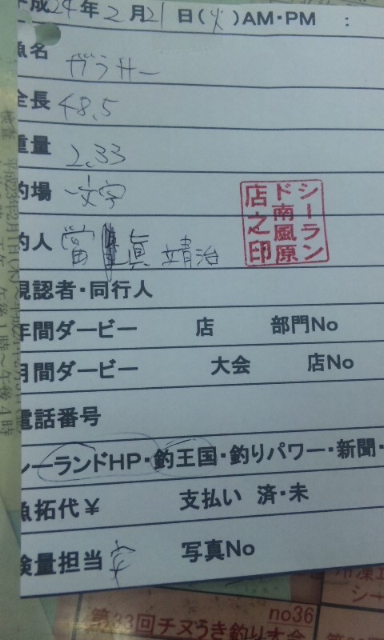 平成24年2月21日(火)AM・PM :
魚名 ガラサー
全長 48.5
重量 2.33
釣場 一文字
シーラン
ド南風原
店之印
釣人 當眞 靖治
現認者・同行人
年間ダービー 店 部門No
月間ダービー 大会 店No
電話番号
シーランドHP・釣王国・釣りパワー・新聞・
魚拓代¥ 支払い 済・未
検量担当 安 写真No
no36
第33回チヌうき釣り大会